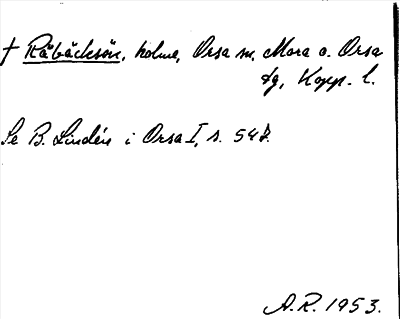 † Råbäcksön, holme, Orsa sn, Mora o. Orsa
tg, Kopp. l.
Se B. Lindén i Orsa I, s. 548.
A.R. 1953.